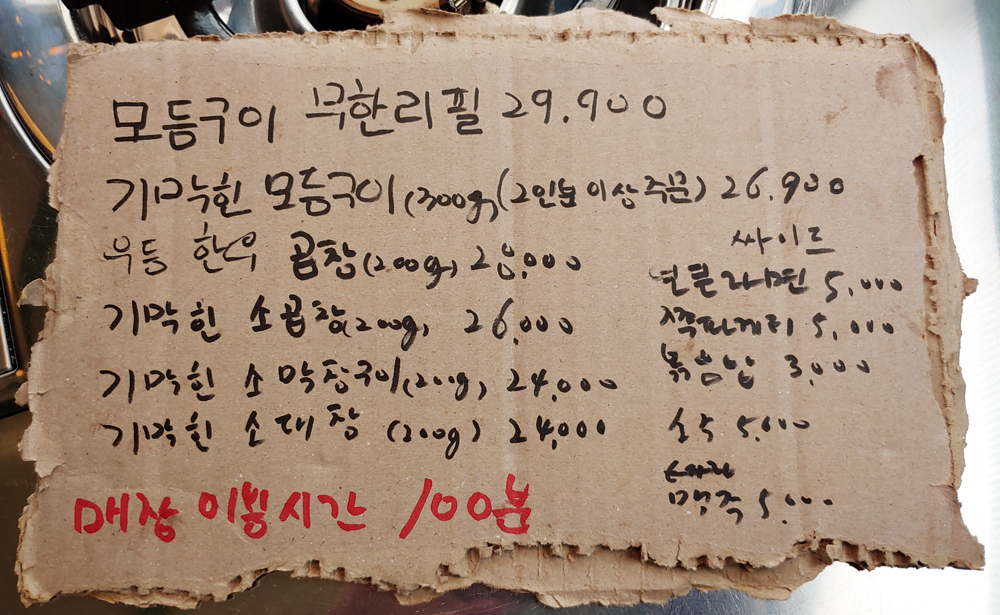 모듬구이 무한리필 29.900
기막힌 모듬구이(300g)(2인분이상주문) 26.900
우등 한우 곱창(200g) 28,000
기막힌 소곱창(200g) 26,000
기막힌 소막창구이(200g) 24,000
기막힌 소대창 (200g) 24,000
매장 이용시간 100분
싸이드
라면 5,000
쪽파계리 5,000
볶음밥 3,000
소주 5,000
맥주 5,000